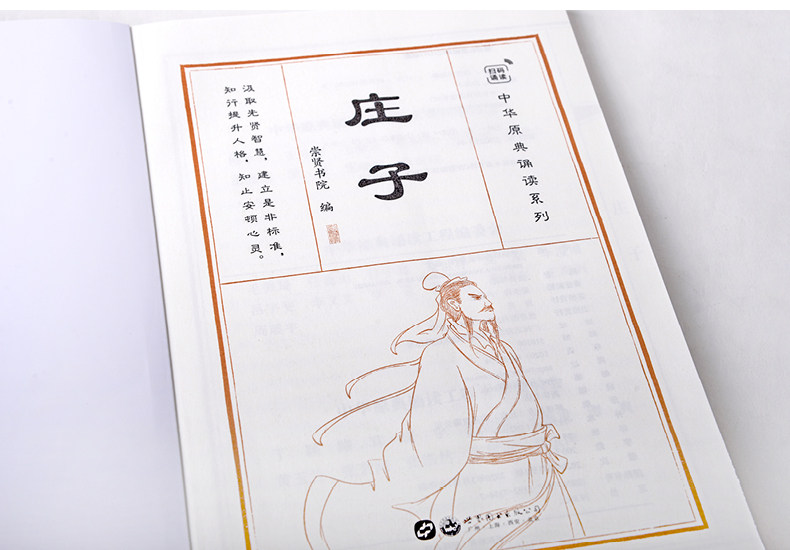 扫码
诵读
中华原典诵读系列
庄子
崇贤书院 编
汲取先贤智慧，建立是非标准，
知行提升人格，知止安顿心灵。
世界图书出版公司